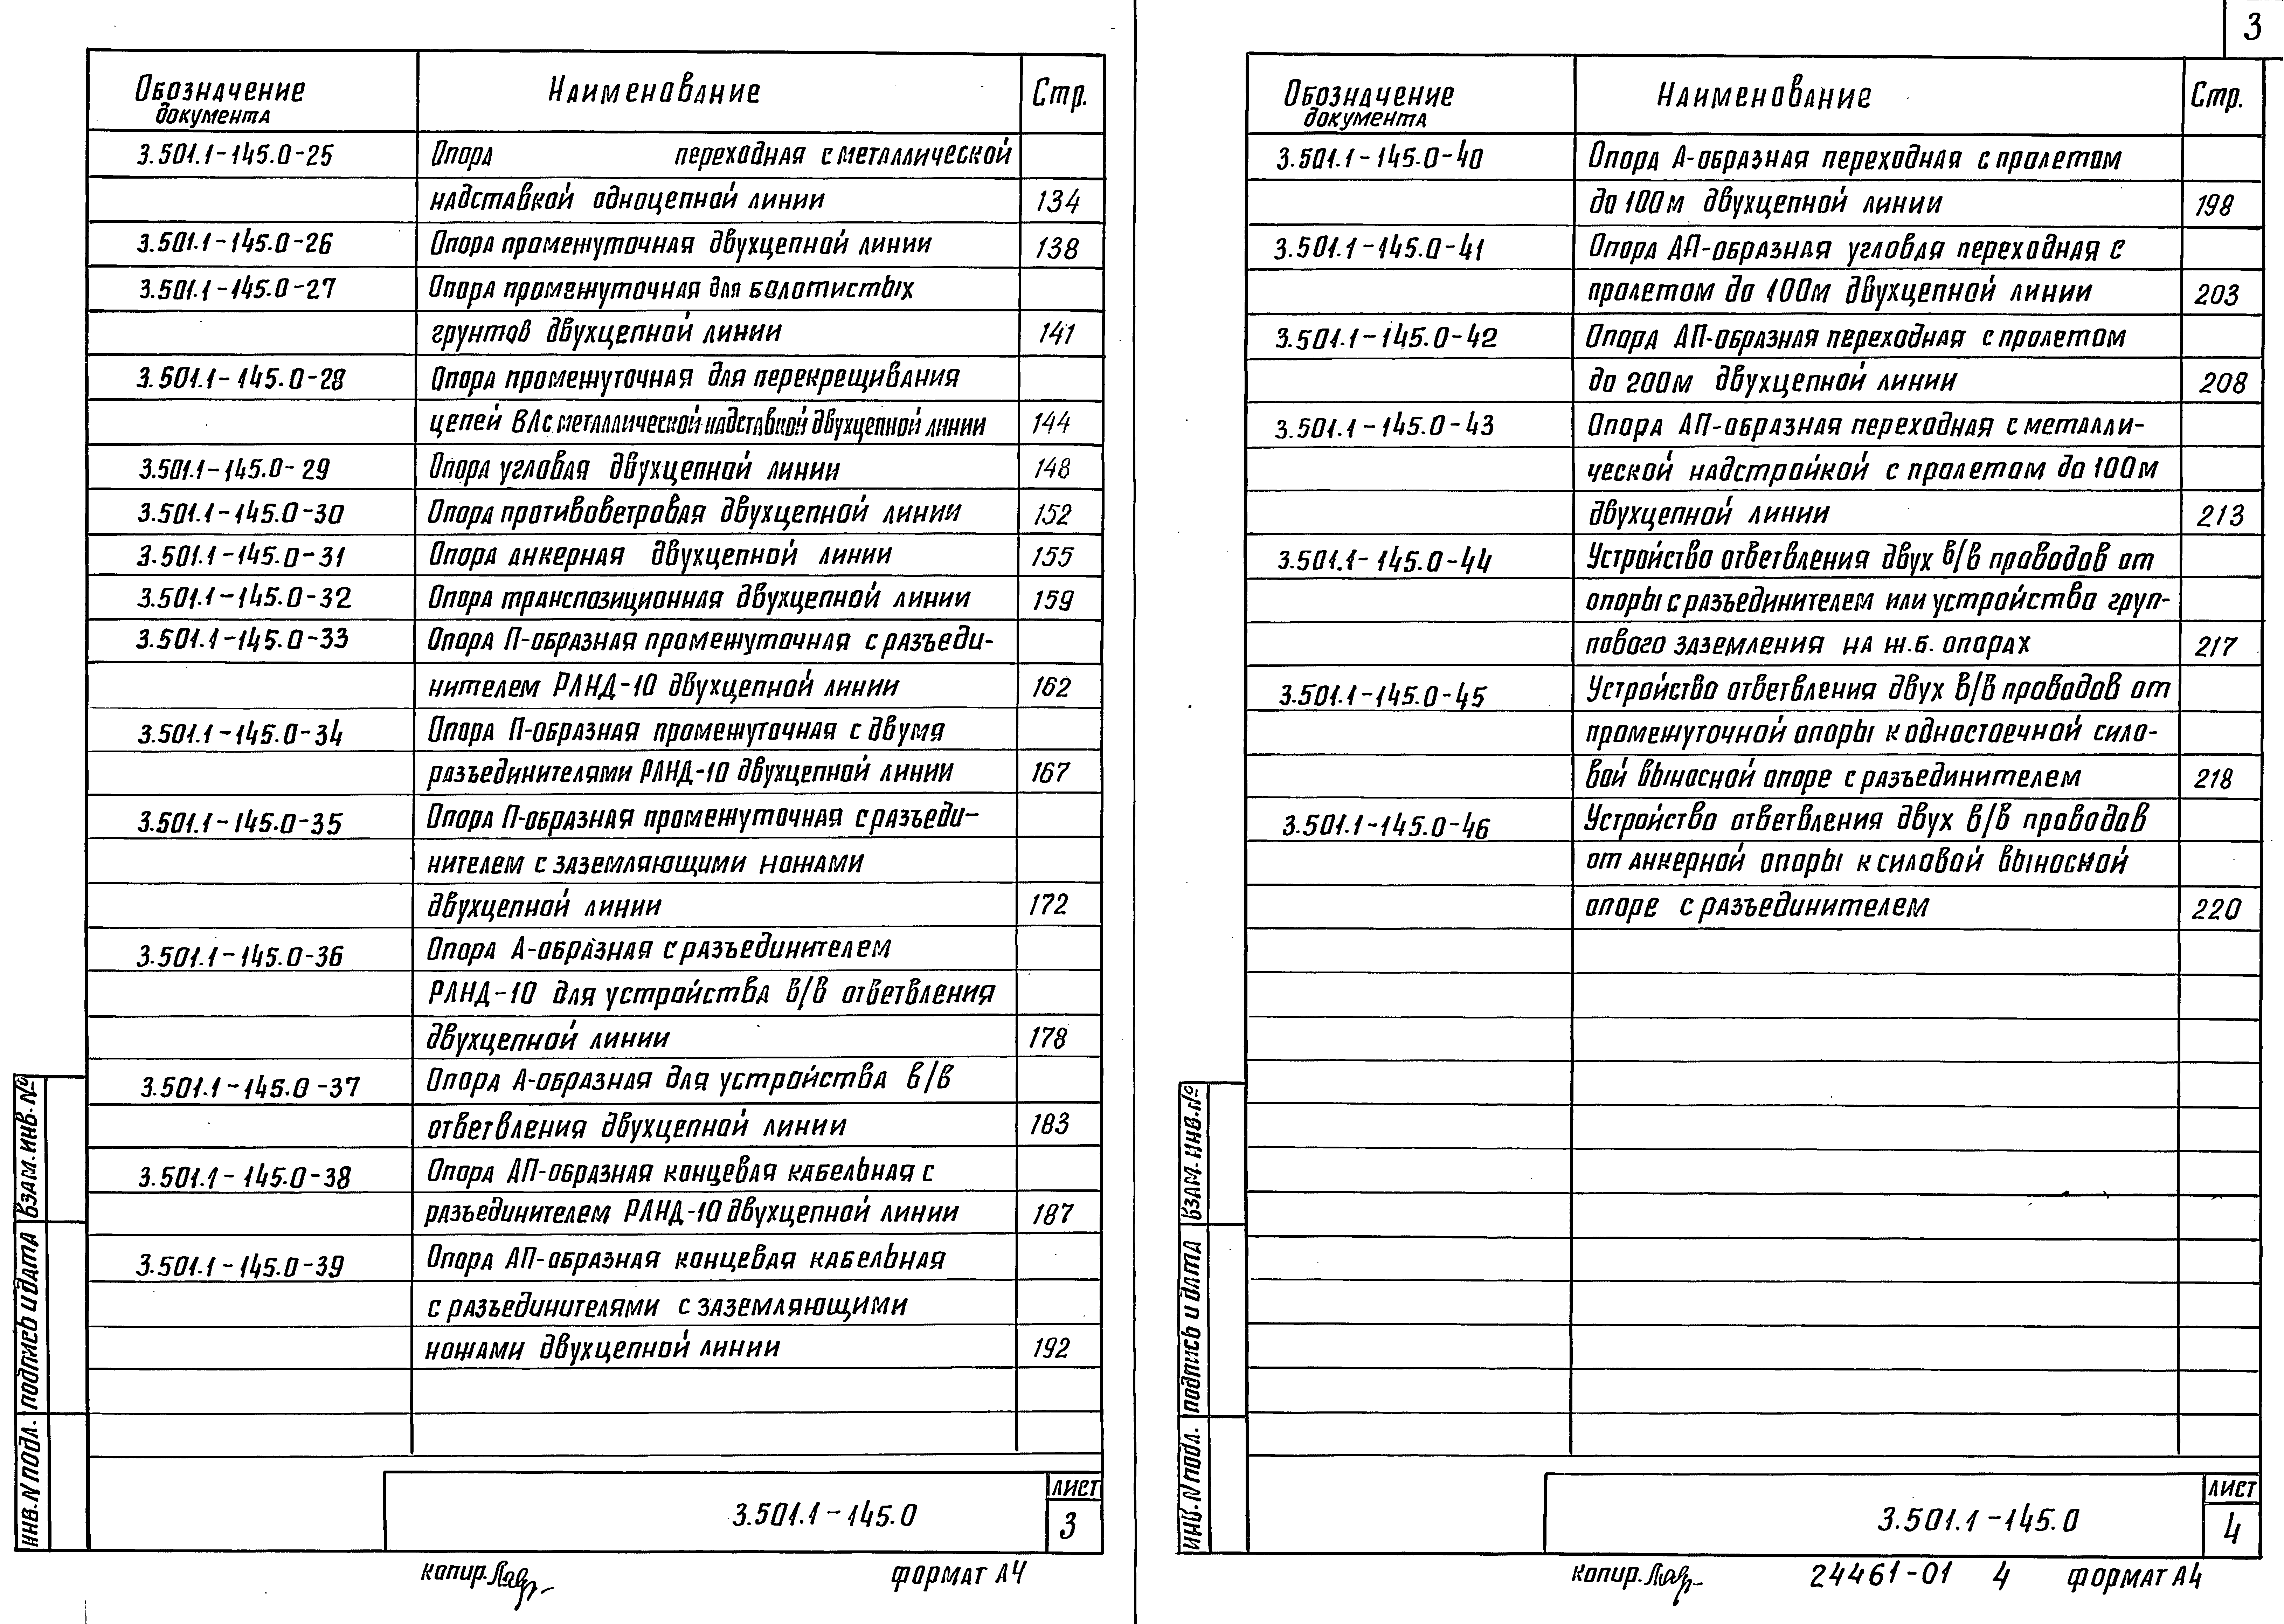 3
Обозначение документа Наименование Стр.
3.501.1-145.0-25 Опора переходная с металлической
надставкой одноцепной линии 134
3.501.1-145.0-26 Опора промежуточная двухцепной линии 138
3.501.1-145.0-27 Опора промежуточная для болотистых
грунтов двухцепной линии 141
3.501.1-145.0-28 Опора промежуточная для перекрещивания
цепей ВЛ с металлической надставкой двухцепной линии 144
3.501.1-145.0-29 Опора угловая двухцепной линии 148
3.501.1-145.0-30 Опора противоветровая двухцепной линии 152
3.501.1-145.0-31 Опора анкерная двухцепной линии 155
3.501.1-145.0-32 Опора транспозиционная двухцепной линии 159
3.501.1-145.0-33 Опора П-образная промежуточная с разъеди-
нителем РЛНД-10 двухцепной линии 162
3.501.1-145.0-34 Опора П-образная промежуточная с двумя
разъединителями РЛНД-10 двухцепной линии 167
3.501.1-145.0-35 Опора П-образная промежуточная с разъеди-
нителем с заземляющими ножами
двухцепной линии 172
3.501.1-145.0-36 Опора А-образная с разъединителем
РЛНД-10 для устройства в/в ответвления
двухцепной линии 178
3.501.1-145.0-37 Опора А-образная для устройства в/в
ответвления двухцепной линии 183
3.501.1-145.0-38 Опора АП-образная концевая кабельная с
разъединителем РЛНД-10 двухцепной линии 187
3.501.1-145.0-39 Опора АП-образная концевая кабельная
с разъединителями с заземляющими
ножами двухцепной линии 192
Взам. инв. №
Подпись и дата
Инв. N подл.
3.501.1-145.0
Лист
3
копир.
формат А4
Обозначение документа Наименование Стр.
3.501.1-145.0-40 Опора А-образная переходная с пролетом
до 100м двухцепной линии 198
3.501.1-145.0-41 Опора АП-образная угловая переходная с
пролетом до 100м двухцепной линии 203
3.501.1-145.0-42 Опора АП-образная переходная с пролетом
до 200м двухцепной линии 208
3.501.1-145.0-43 Опора АП-образная переходная с металли-
ческой надстройкой с пролетом до 100м
двухцепной линии 213
3.501.1-145.0-44 Устройство ответвления двух в/в проводов от
опоры с разъединителем или устройства груп-
пового заземления на ж.б. опорах 217
3.501.1-145.0-45 Устройство ответвления двух в/в проводов от
промежуточной опоры к одностоечной сило-
вой выносной опоре с разъединителем 218
3.501.1-145.0-46 Устройство ответвления двух в/в проводов
от анкерной опоры к силовой выносной
опоре с разъединителем 220
Взам. инв. №
Подпись и дата
Инв. N подл.
3.501.1-145.0
Лист
4
копир.
24461-01 4
формат А4